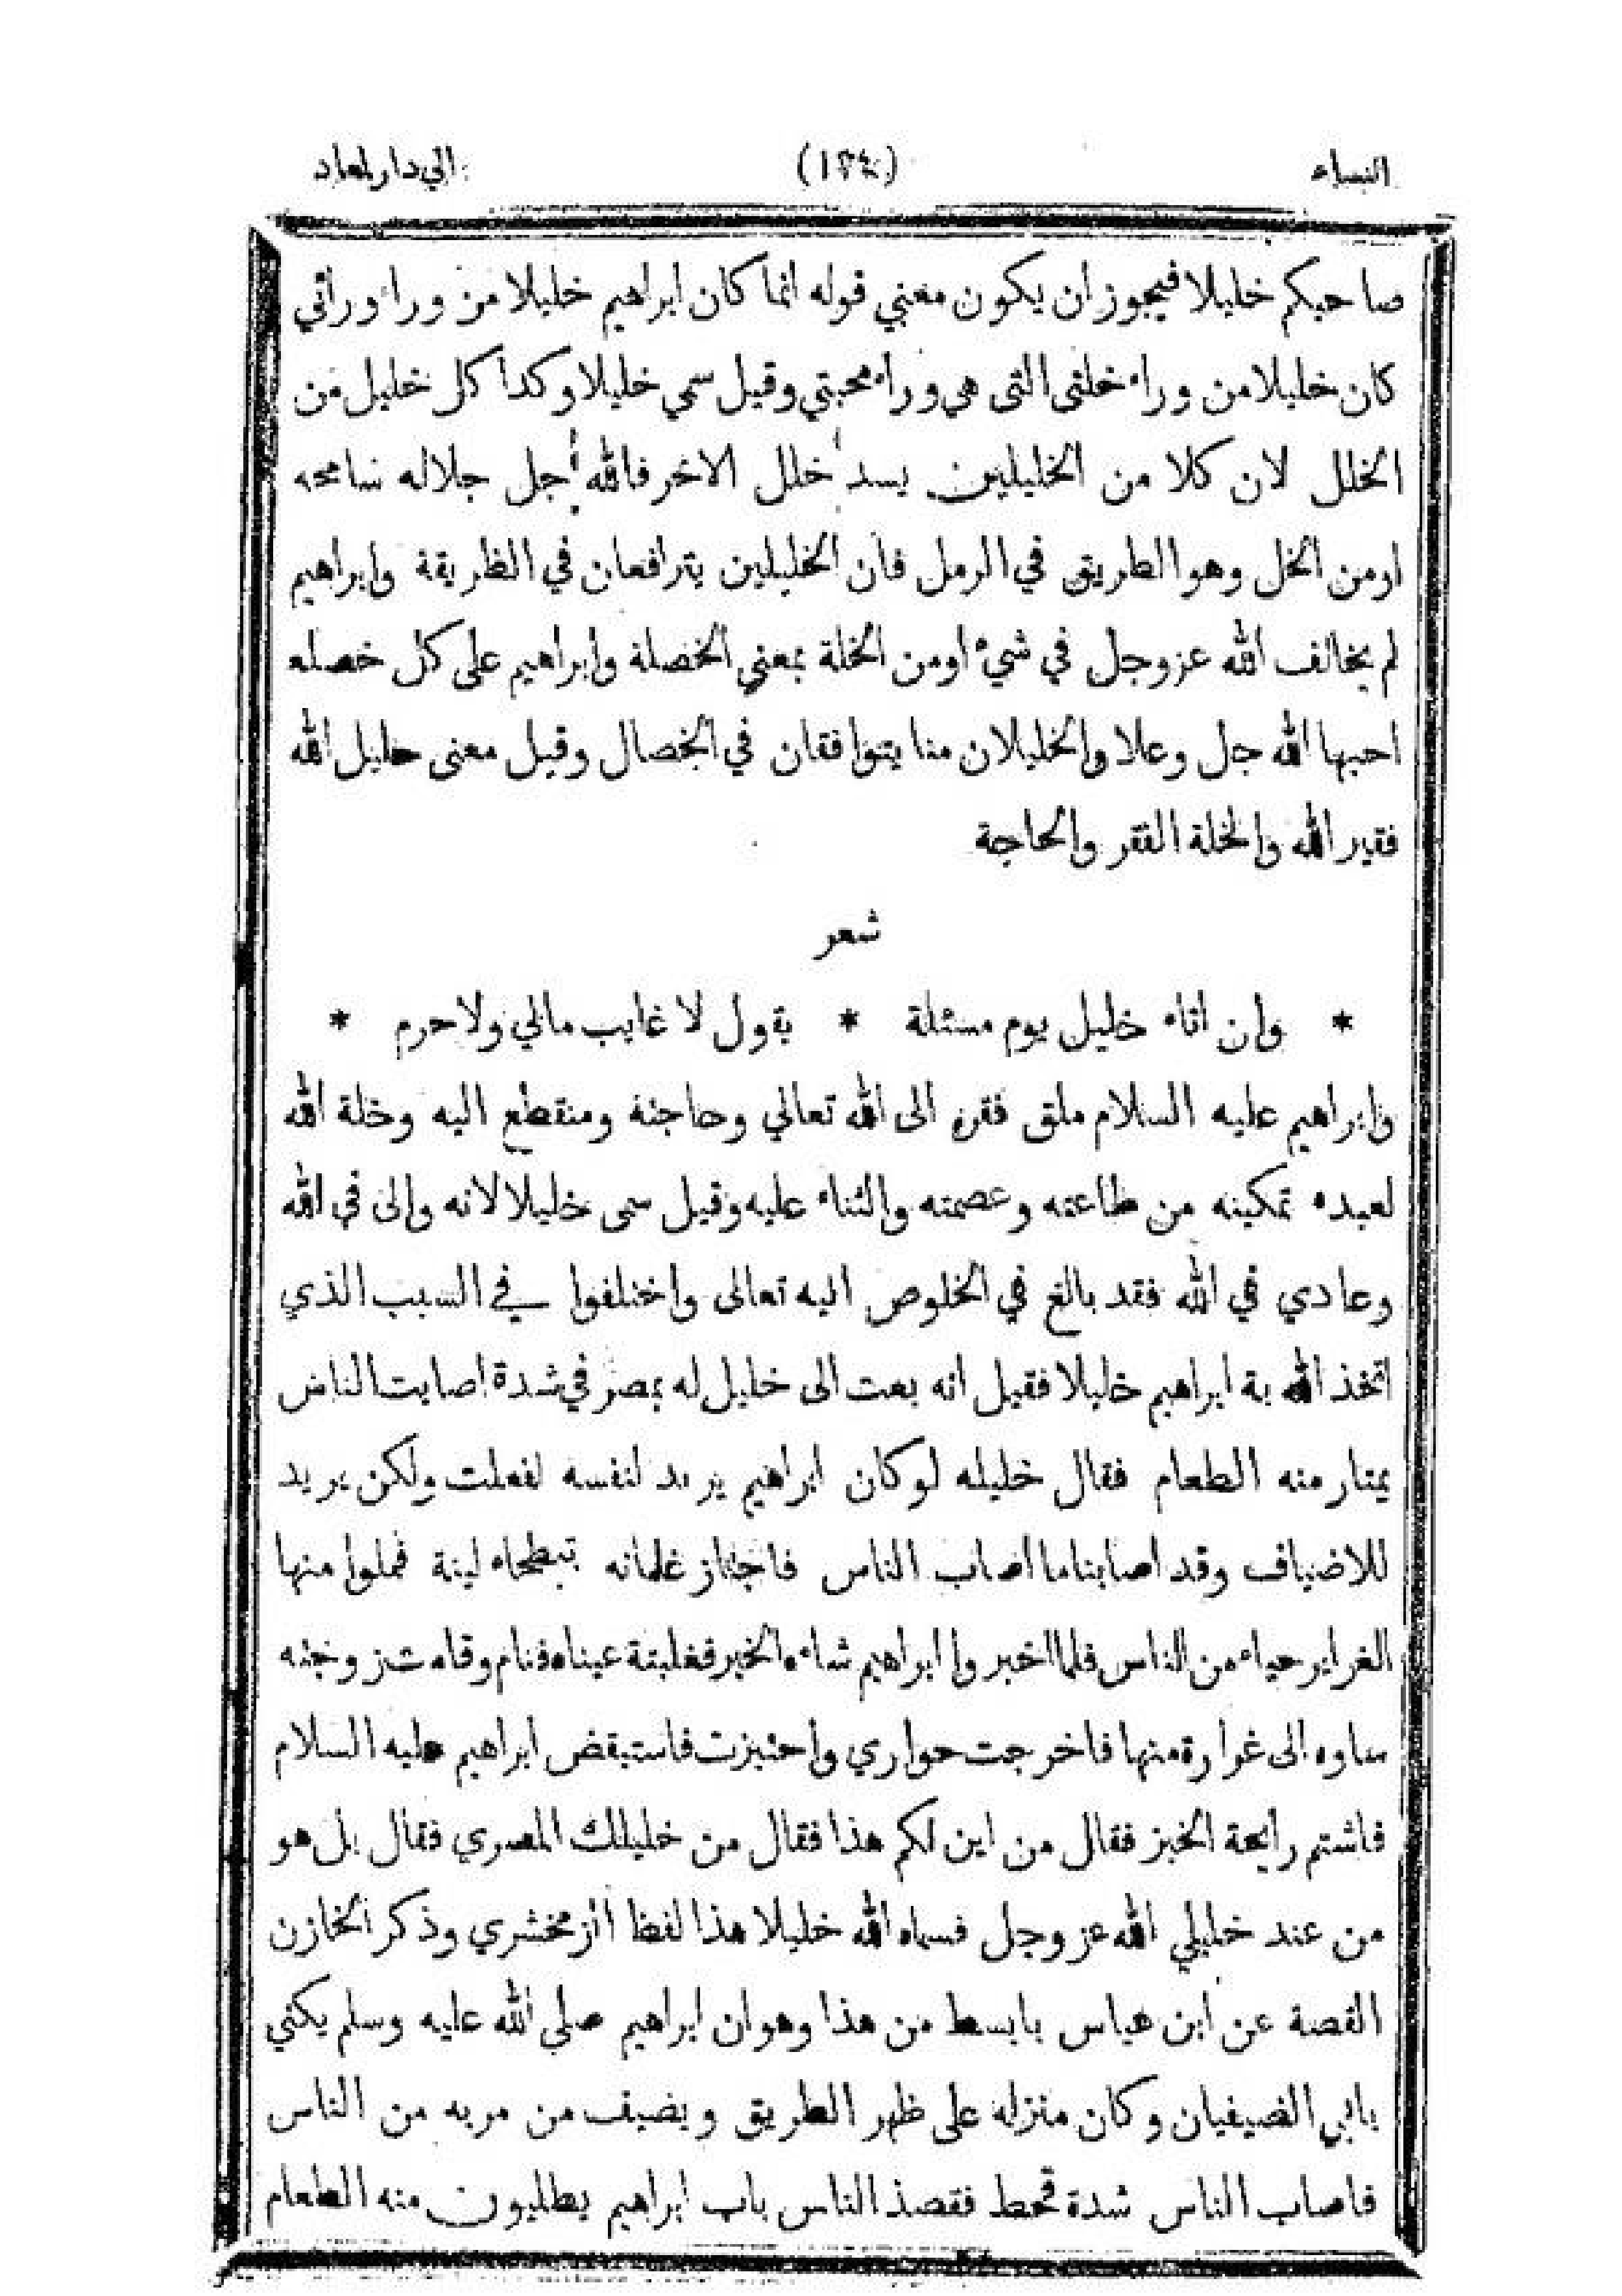 النساء (١٣٤) الي دار المعاد
صاحبكم خليلا فيجوز ان يكون معني قوله انما كان ابراهيم خليلا من وراء ورأني
كان خليلا من وراء خلتى التى هي وراء محبتي وقيل سمي خليلا وكذا كل خليل من
الخلل لان كلا من الخليلين يسد خلل الاخر فالله جل جلاله سامحه
اومن الخل وهو الطريق في الرمل فان الخليلين يترافعان في الطريقة وابراهيم
لم يخالف الله عز وجل في شيء اومن الخلة بمعني الخصلة وابراهيم على كل خصلة
احبها الله جل وعلا والخليلان منا يتوافقان في الخصال وقيل معنى خليل الله
فقير الله والخلة الفقر والحاجة
شعر
* وان اتاه خليل يوم مسئلة * يقول لا غايب مالي ولا حرم *
وابراهيم عليه السلام ملق فقره الى الله تعالي وحاجته ومنقطع اليه وخلة الله
لعبده تمكينه من طاعته وعصمته والثناء عليه وقيل سمى خليلا لانه والى في الله
وعادي في الله فقد بالغ في الخلوص اليه تعالى واختلفوا في السبب الذي
اتخذ الله به ابراهيم خليلا فقيل انه بعث الى خليل له بمصر في شدة اصابت الناس
يمتار منه الطعام فقال خليله لو كان ابراهيم يريد لنفسه لفعلت ولكن يريد
للاضياف وقد اصابنا ما اصاب الناس فاجتاز غلمانه ببطحاء لينة فملوا منها
الغراير حياء من الناس فلما اخبروا ابراهيم شاءه الخبر فغلبتة عيناه فنام وقامت زوجته
ساره الى غرارة منها فاخرجت حواري واختبزت فاستيقض ابراهيم عليه السلام
فاشتم رايحة الخبز فقال من اين لكم هذا فقال من خليلك المصري فقال بل هو
من عند خليلي الله عز وجل فسماه الله خليلا هذا لفظ الزمخشري وذكر الخازن
القصة عن ابن عباس بابسط من هذا وهو ان ابراهيم صلي الله عليه وسلم يكني
بابي الضيفيان وكان منزله على ظهر الطريق ويضيف من مر به من الناس
فاصاب الناس شدة قحط فقصد الناس باب ابراهيم يطلبون منه الطعام